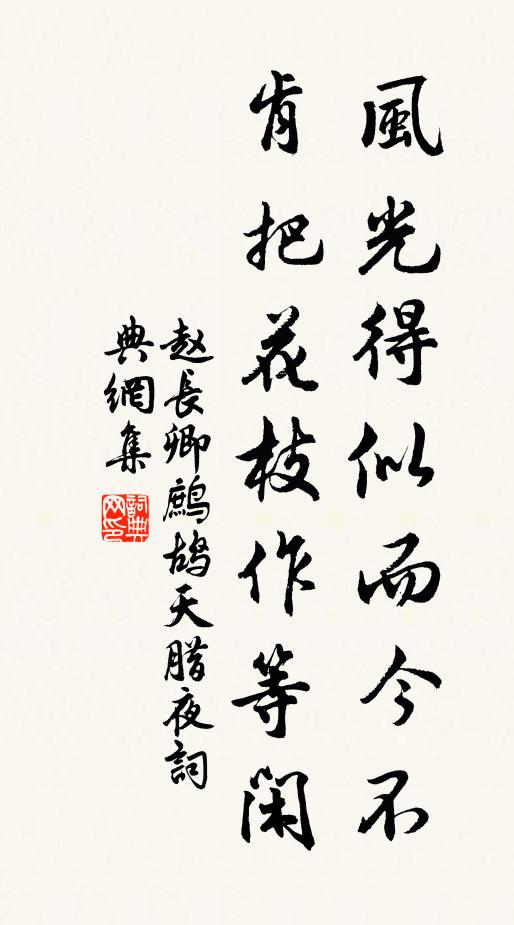 風光得似而今不
肯把花枝作等闲
赵長卿鷓鴣天腊夜詞
典網集
詞典
网印